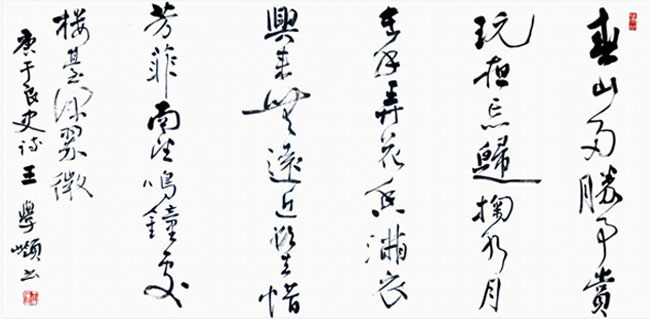 春山多勝事賞
玩夜忘歸掬水月
在手弄花香滿衣
興來無遠近欲去惜
芳菲南望鳴鐘處
楼臺深翠微
唐于良史詩王學嶺書